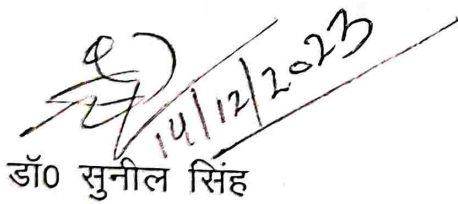 14/12/2023
डॉ0 सुनील सिंह